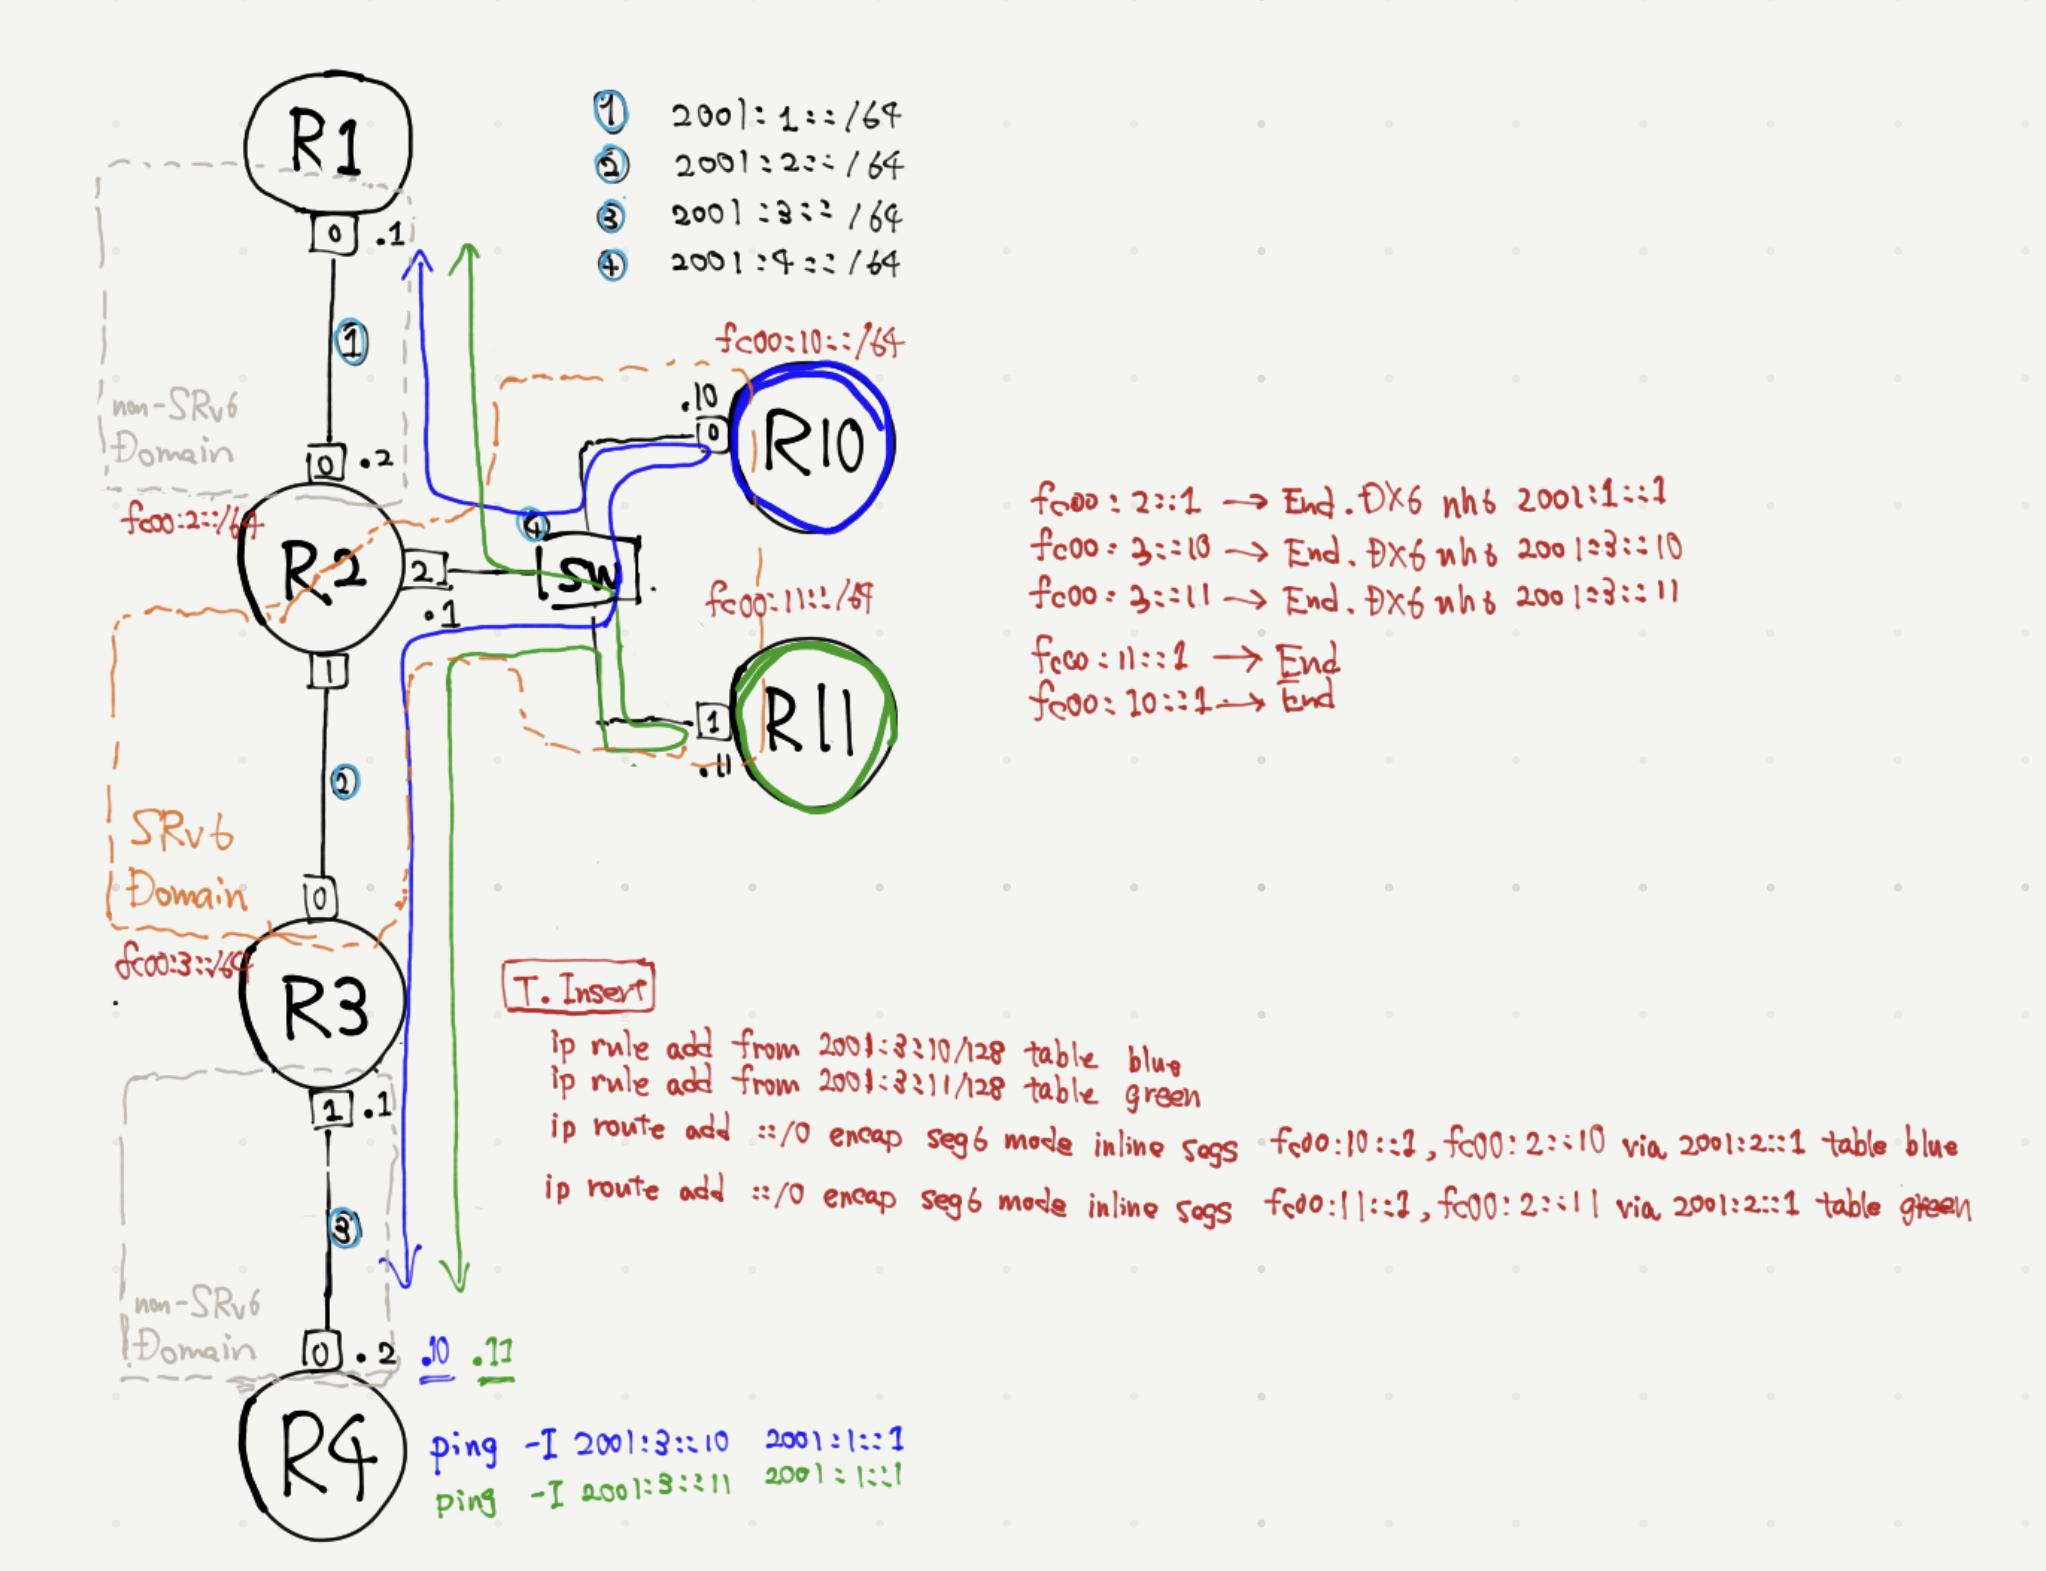 R1
0 .1
① 2001:1::/64
② 2001:2::/64
③ 2001:3::/64
④ 2001:4::/64
①
non-SRv6
Domain
0 .2
fc00:2::/64
R2
2
.1
1
④
SW
fc00:10::/64
.10
0
R10
fc00:11::/64
1
.11
R11
fc00:2::1 → End.DX6 nh6 2001:1::1
fc00:3::10 → End.DX6 nh6 2001:3::10
fc00:3::11 → End.DX6 nh6 2001:3::11
fc00:11::1 → End
fc00:10::1 → End
②
SRv6
Domain
0
fc00:3::/64
R3
1 .1
T.Insert
ip rule add from 2001:3::10/128 table blue
ip rule add from 2001:3::11/128 table green
ip route add ::/0 encap seg6 mode inline segs fc00:10::1, fc00:2::10 via 2001:2::1 table blue
ip route add ::/0 encap seg6 mode inline segs fc00:11::1, fc00:2::11 via 2001:2::1 table green
③
non-SRv6
Domain
0 .2 .10 .11
R4
ping -I 2001:3::10 2001:1::1
ping -I 2001:3::11 2001:1::1